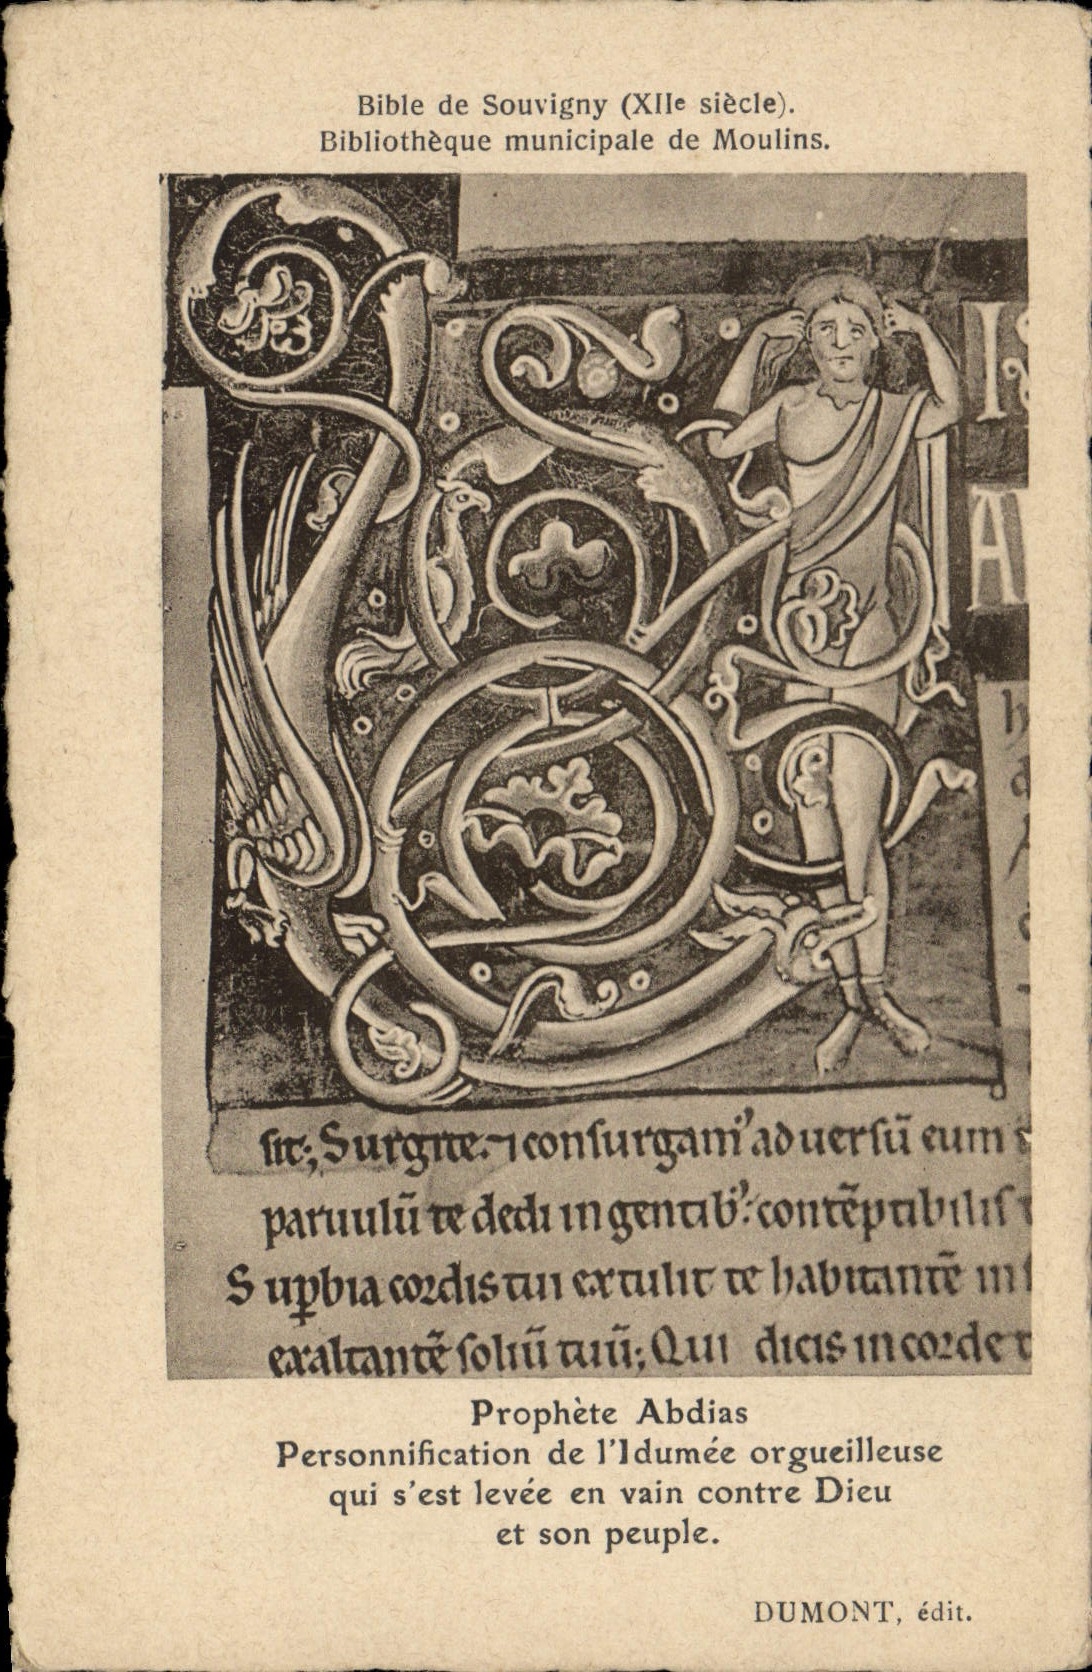 Bible de Souvigny (XIIe siècle).
Bibliothèque municipale de Moulins.
IS
A
h
a
sit; Surgite ⁊ consurgamꝰ aduersū eum
paruulū te dedi in gentibꝰ: contēptibilis t
Suꝑbia cordis tui extulit te habitantē in s
exaltantē soliū tuū; Qui dicis in corde t
Prophète Abdias
Personnification de l'Idumée orgueilleuse
qui s'est levée en vain contre Dieu
et son peuple.
DUMONT, édit.